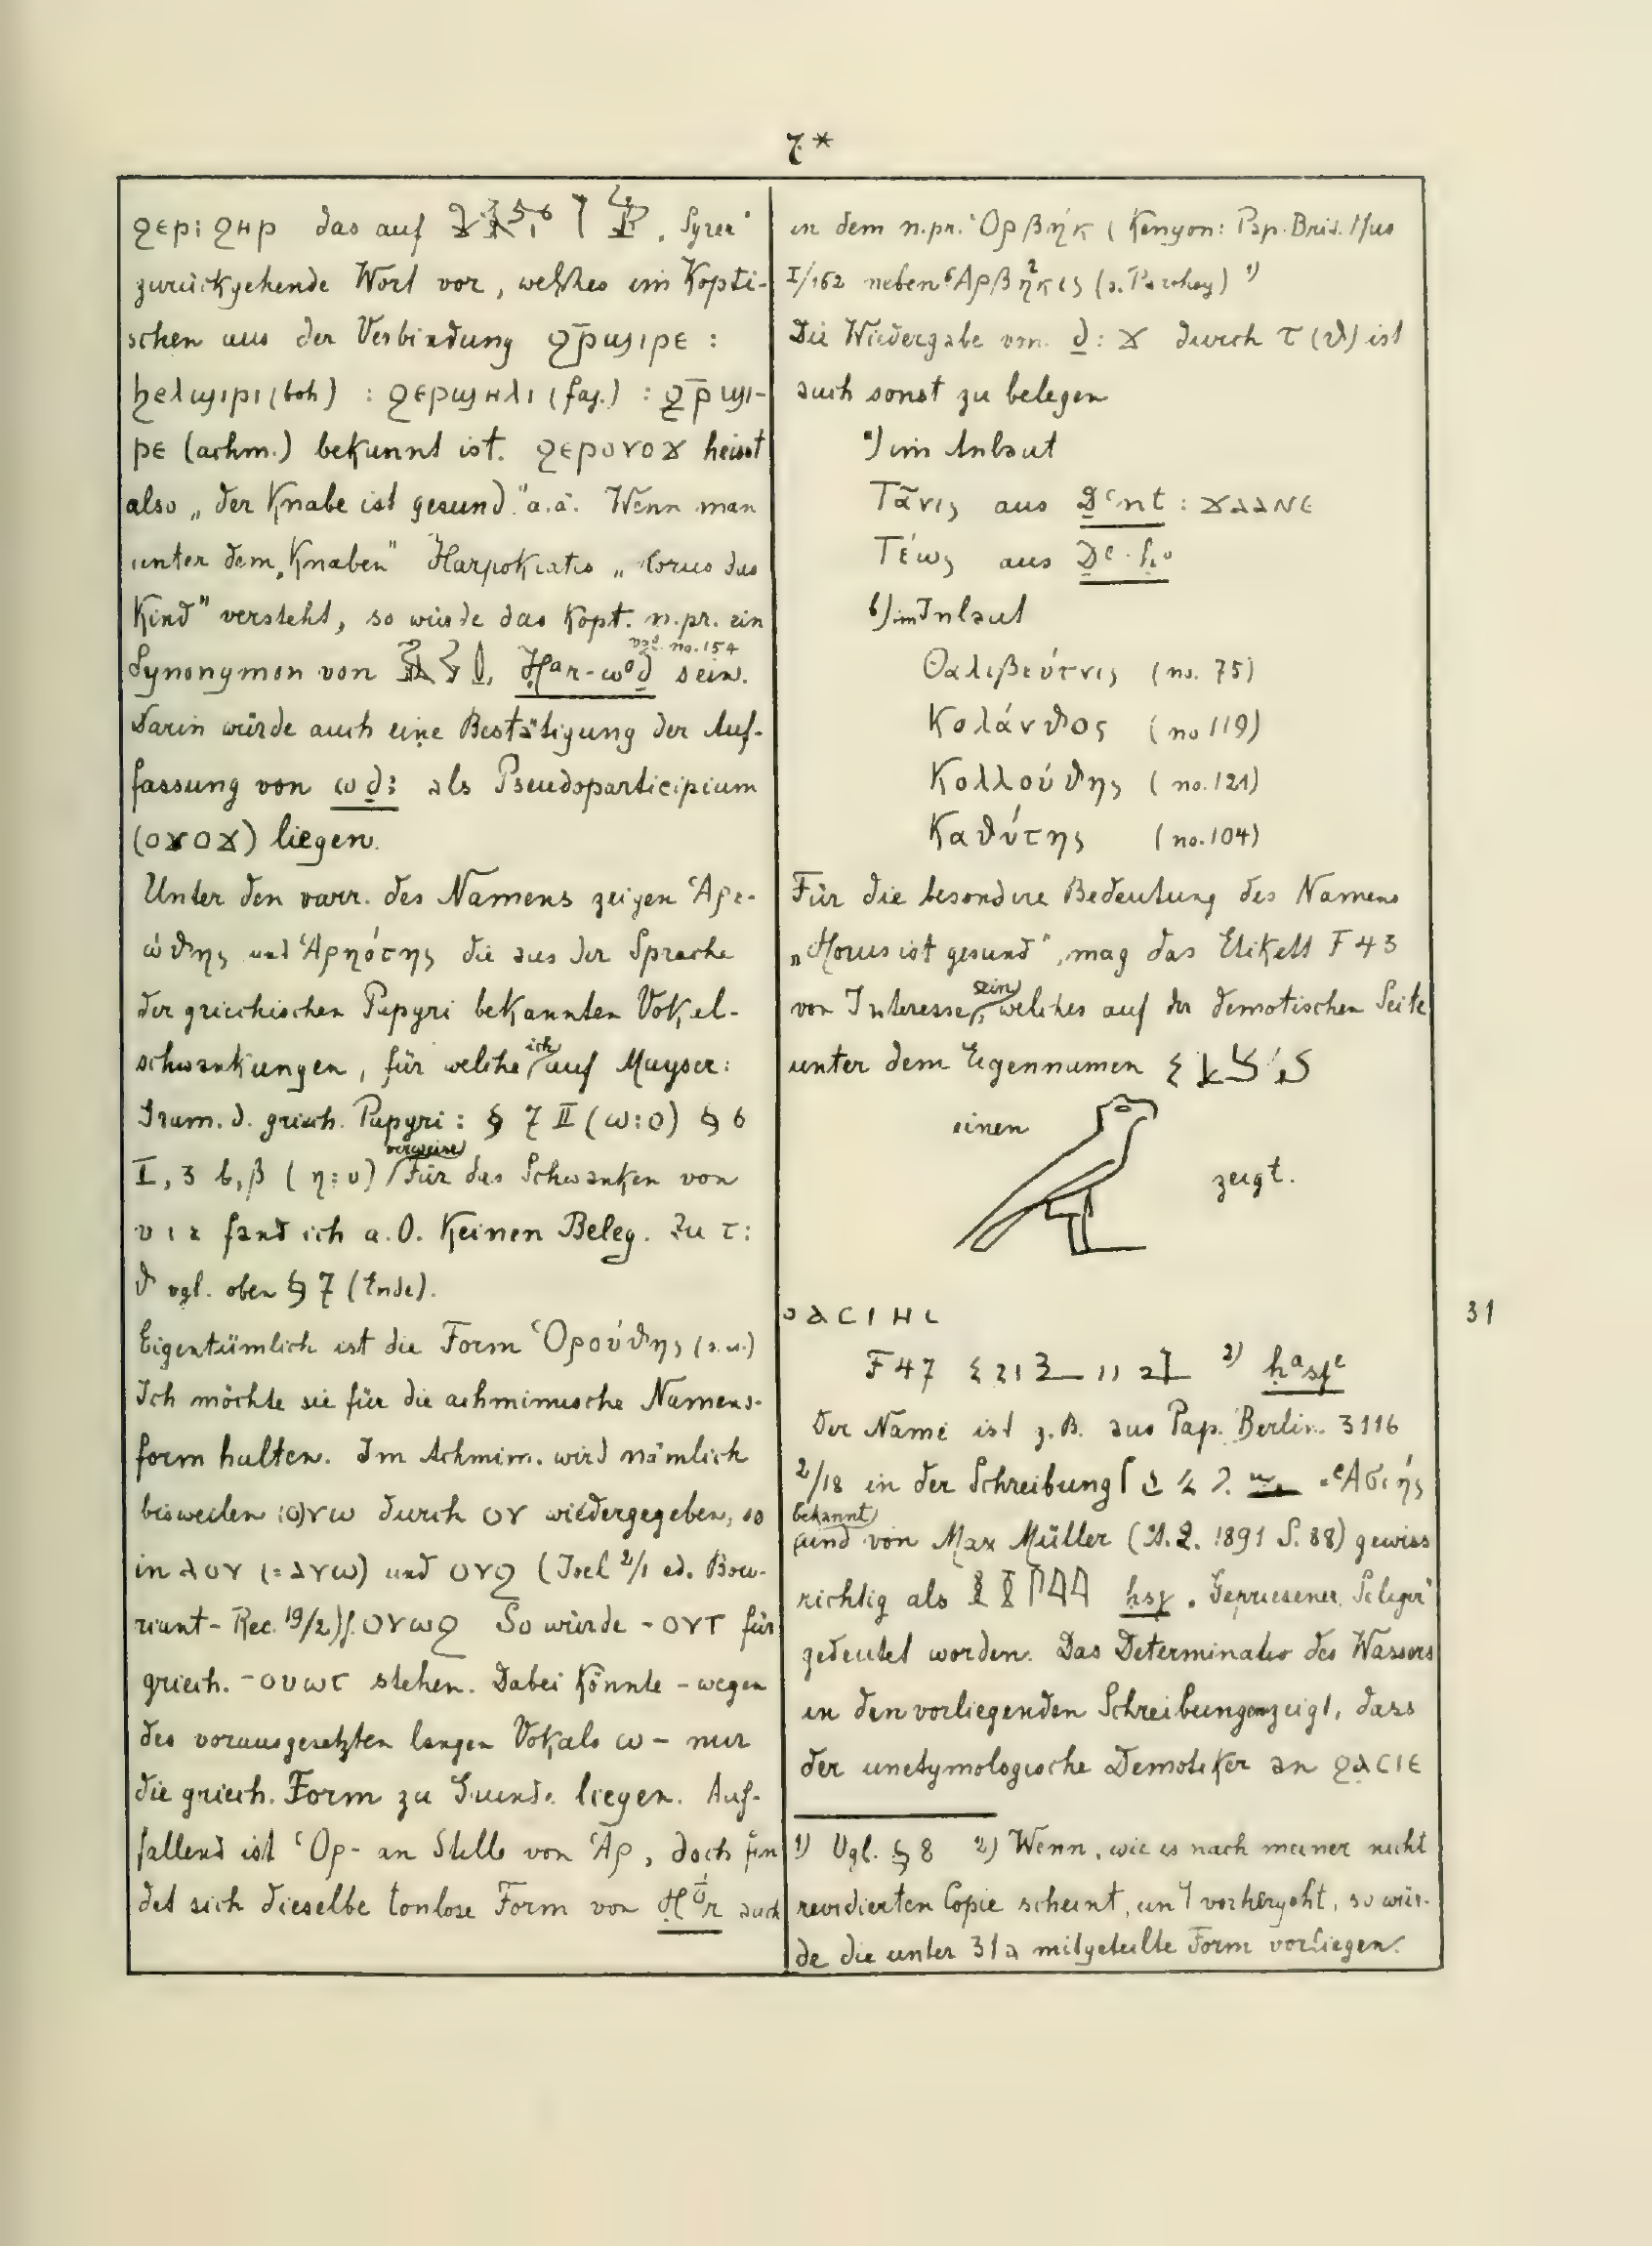 7*
ϩⲉⲣⲓ ϩⲏⲣ das auf „Syrer"
zurückgehende Wort vor, welches im Kopti-
schen aus der Verbindung ϩⲣ̄ϣⲓⲣⲉ :
ϧⲉⲗϣⲓⲣⲓ (boh) : ϩⲉⲣϣⲏⲗⲓ (faj.) : ϩⲣ̄ϣⲓ-
ⲣⲉ (achm.) bekannt ist. ϩⲉⲣⲟⲩⲟϫ heisst
also „der Knabe ist gesund" a.ä. Wenn man
unter dem „Knaben" Harpokrates „Horus das
Kind" versteht, so würde das Kopt. n.pr. ein
Synonymon von Ḥar-woḏ vgl. no. 154 sein.
Darin würde auch eine Bestätigung der Auf-
fassung von wḏꜣ als Pseudoparticipium
(ⲟⲩⲟϫ) liegen.
Unter den varr. des Namens zeigen Ἁρε-
ώθης und Ἁρηότης die aus der Sprache
der griechischen Papyri bekannten Vokal-
schwankungen, für welche ich auf Mayser:
Gram. d. griech. Papyri: § 7 II (ω:ο) § 6
I, 3 b, β (η:υ) verweise Für das Schwanken von
fand ich a. O. keinen Beleg. Zu τ:
θ vgl. oben § 7 (Ende).
Eigentümlich ist die Form Ὁρούθης (s.u.)
Ich möchte sie für die achmimische Namens-
form halten. Im Achmim. wird nämlich
bisweilen (ⲟ)ⲩⲱ durch ⲟⲩ wiedergegeben, so
in ⲁⲟⲩ (= ⲁⲩⲱ) und ⲟⲩϩ (Joel 2/1 ed. Bou-
riant - Rec. 19/2) f. ⲟⲩⲱϩ So würde -ⲟⲩⲧ für
griech. -ουωτ stehen. Dabei könnte - wegen
des vorausgesetzten langen Vokals ω - nur
die griech. Form zu Grunde liegen. Auf-
fallend ist Ὁρ- an Stelle von Ἁρ, doch fin
det sich dieselbe tonlose Form von Ḥōr auch
in dem n.pr. Ὁρβήκ (Kenyon: Pap. Brit. Mus
I/162 neben Ἁρβῆκις (s. Parthey) ¹)
Die Wiedergabe von ḏ: ϫ durch τ (θ) ist
auch sonst zu belegen
a) im Anlaut
Τᾶνις aus Ḏꜥnt : ϫⲁⲁⲛⲉ
Τέως aus
b) im Inlaut
Θαλιβεύτνις (no. 75)
Κολάνθος (no 119)
Κολλούθης (no. 121)
Καθύτης (no. 104)
Für die besondere Bedeutung des Namens
„Horus ist gesund", mag das Etikett F 43
von Interesse sein, welches auf der demotischen Seite
unter dem Eigennamen
einen
zeigt.
ϩⲁⲥⲓⲏⲥ
31
F 47 ²)
Der Name ist z. B. aus Pap. Berlin. 3116
2/18 in der Schreibung = Ἁσιῆς
bekannt und von Max Müller (Ä.Z. 1891 S. 88) gewiss
richtig als ḥsj „Gepriesener, Seliger"
gedeutet worden. Das Determinativ des Wassers
in den vorliegenden Schreibungen zeigt, dass
der unetymologische Demotiker an ϩⲁⲥⲓⲉ
1) Vgl. § 8 2) Wenn, wie es nach meiner nicht
revidierten Copie scheint, ein vorhergeht, so wür-
de die unter 31a mitgeteilte Form vorliegen.